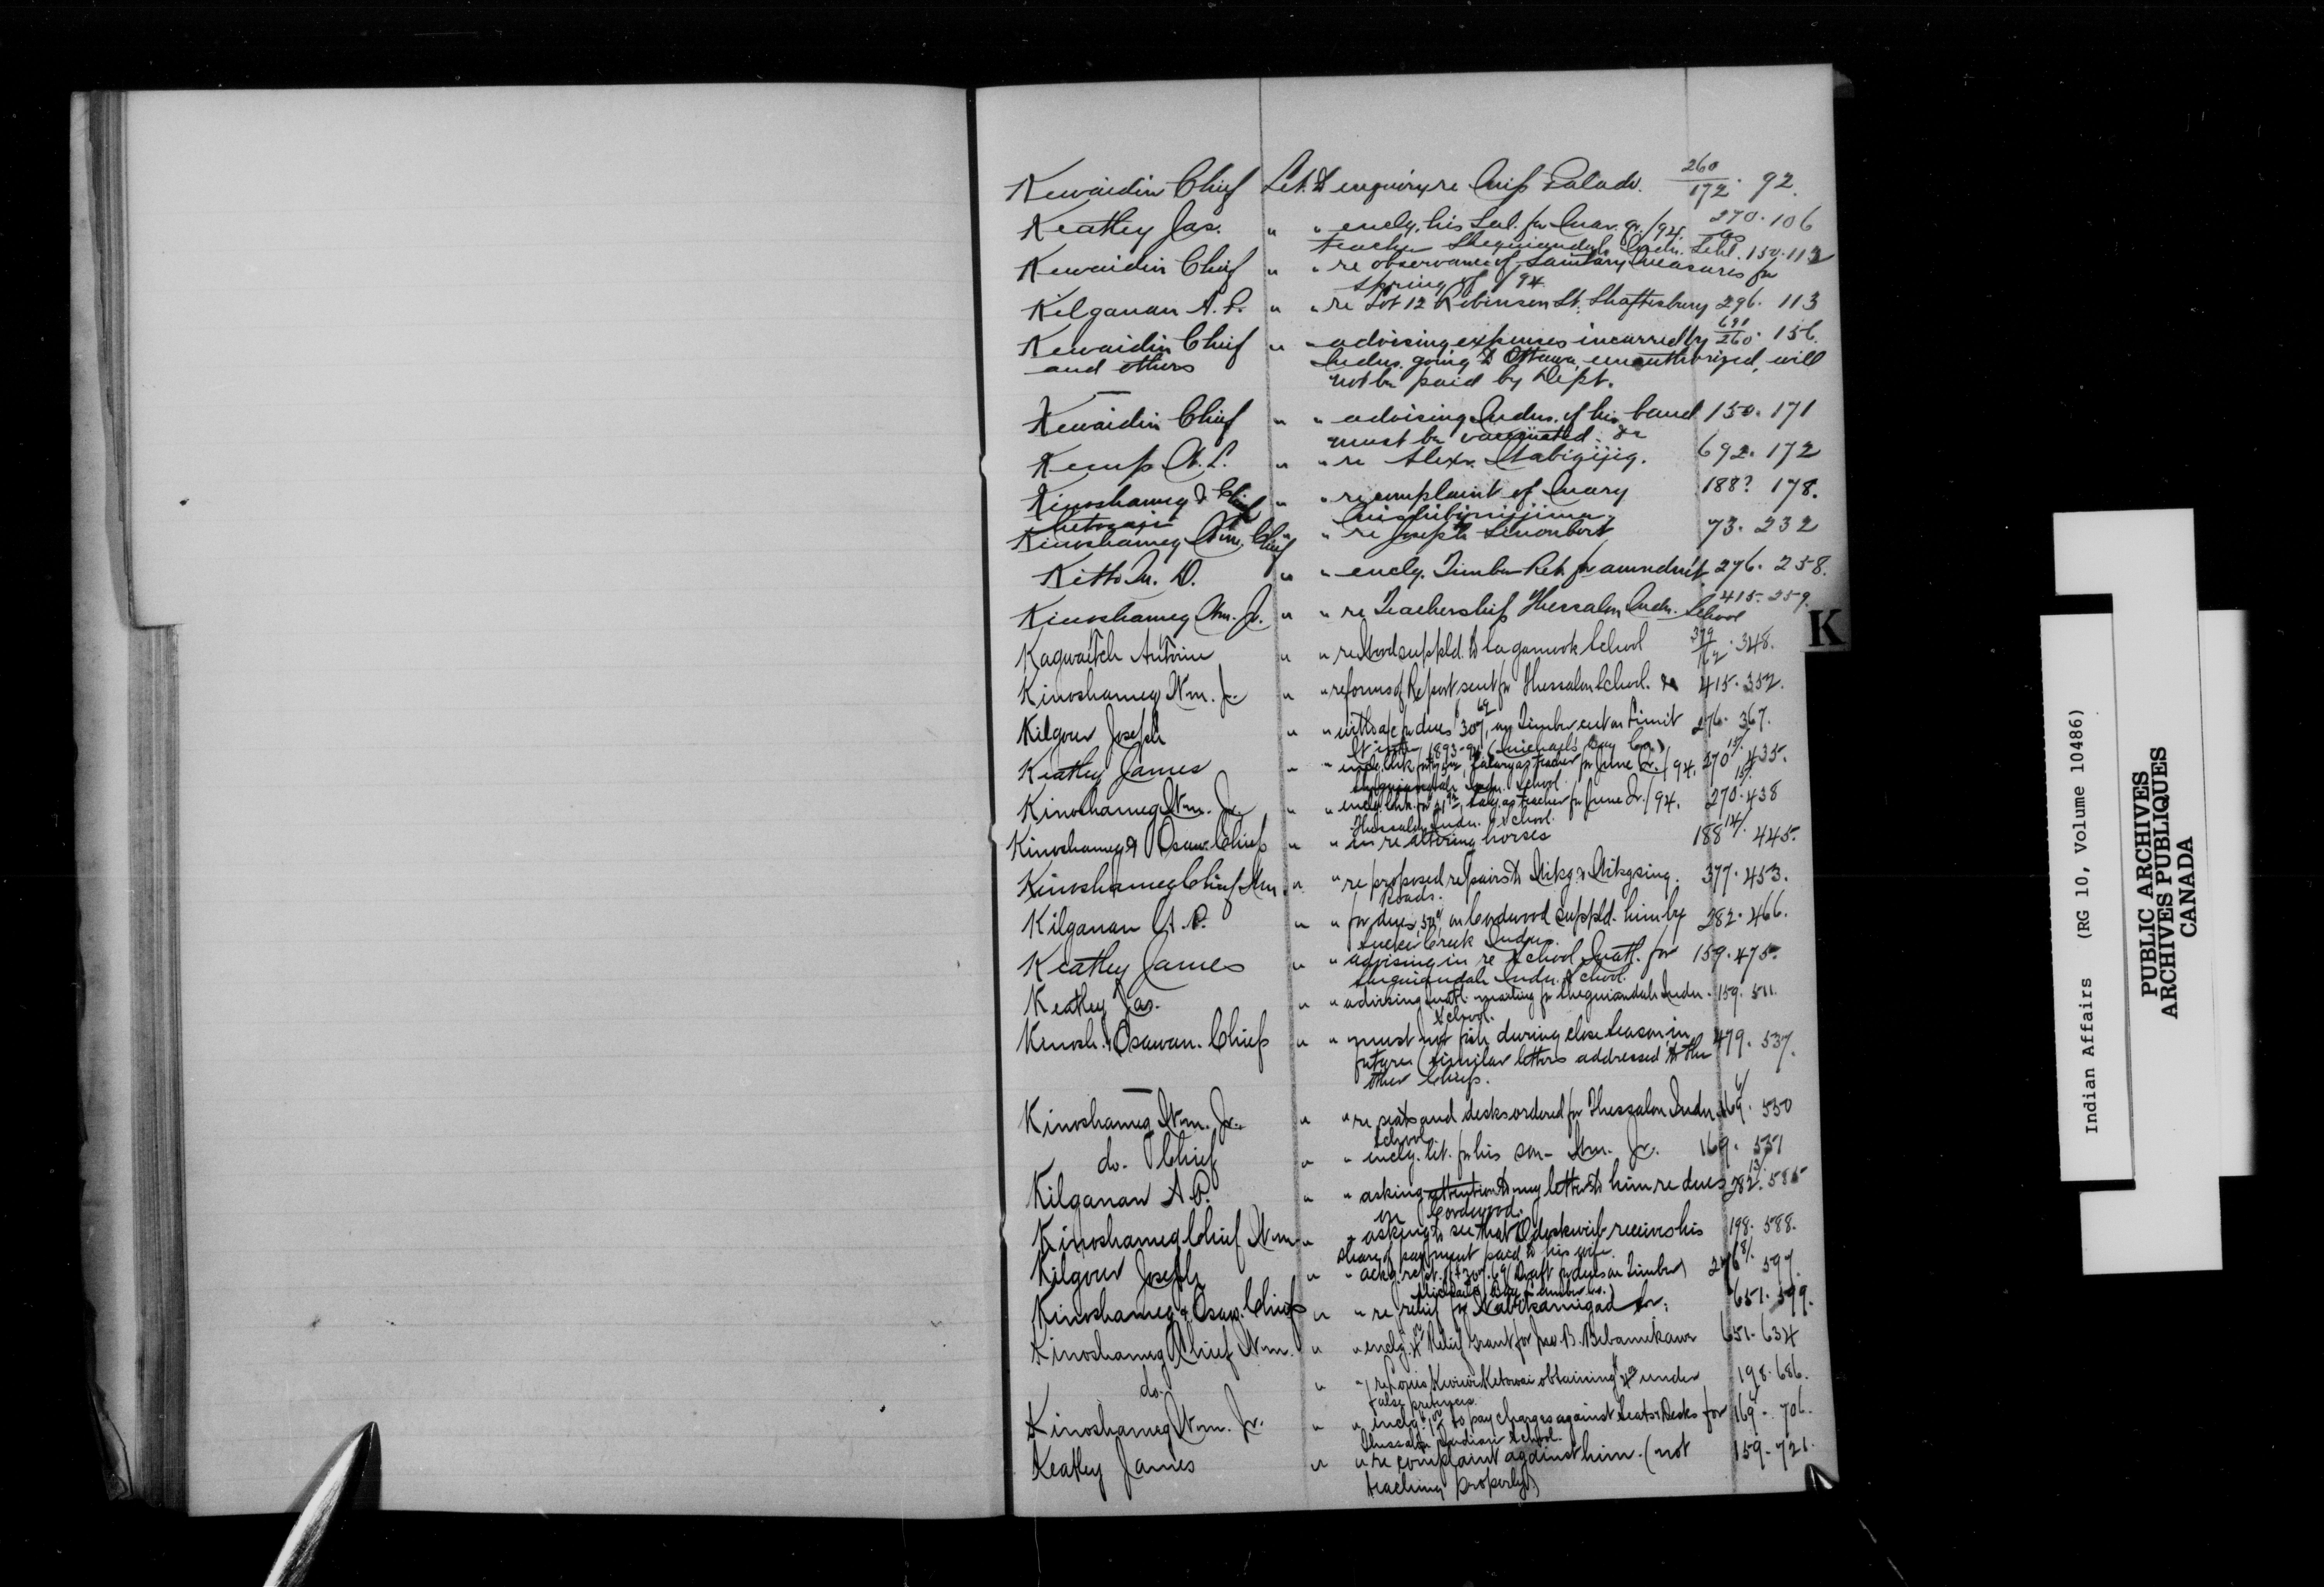 Kewaidin Chief Let. to enquiry re Miss 260/172. 92.
Keatley Jas. " " encly. his Sal. for Mar. Qr./94 270. 106
teacher Sheguiandah Indn. Schl. 150. 112
Kewaidin Chief " " re observance of Sanitary Measures for
spring of 94
Kilganan A. P. " " re Lot 12 Robinson St. Shaftesbury 296. 113
Kewaidin Chief " " advising expenses incurred by 691/260. 156.
and others Indns. going to Ottawa, unauthorized, will
not be paid by Dept.
Kewaidin Chief " " advising Indns. of his band 150. 171
must be vaccinated. &c
Kemp A. L. " " re Alexr. 692. 172
Kinoshameg & Chief " " re complaint of Mary 188? 178.
Kinoshameg Wm. Chief " " re Joseph 73. 232
Kitto M. D. " " encly. Timber Ret. for amendmt 276. 258.
415. 259.
Kinoshameg Wm. Jr. " " re Teachership Thessalon Indn. School
Antoine " " re Wood suppld. to School 379/162. 348.
Kinoshameg Wm. Jr. " " re forms of Report sent for Thessalon School. &c 415. 352.
Kilgour Joseph " " with a/c for dues $307.69 on Timber cut on Limit 276. 367.
1893-94 (Michaels Bay Co.)
Keatley James " " encly. chk. Salary as teacher for June Qr./94. 270 15/. 435.
Sheguiandah Indn. School.
Kinoshameg Wm. Jr. " " encly. chk. for Saly. as teacher for June Qr./94. 270 15/. 438
Thessalon Indn. School.
Kinoshameg & Osaw. Chiefs " " in re altering horses 188 14/. 445.
Kinoshameg Chief Wm. " " re proposed repairs to Wikg. & Wikgsing. 377. 453.
Roads.
Kilganan A. P. " " for dues, on Cordwood suppld. him by 282. 466.
Sucker Creek Indns.
Keatley James " " advising in re School Matl. for 159. 475.
Sheguiandah Indn. School.
Keatley Jas. " " advising matl. for Sheguiandah Indn. 159. 511.
School.
Kinosh. & Osawan. Chiefs " " must not fish during close season in 479. 537.
future (similar letters addressed to the
other Chiefs.
Kinoshameg Wm. Jr. " " re seats and desks ordered for Thessalon Indn. 169 6/. 550
School
do. Chief " " encly. let. for his son - Wm. Jr. 169. 551
Kilganan A. P. " " asking attention to my letter to him re dues 282 13/. 585
on Cordwood.
Kinoshameg Chief Wm. " " asking to see that receives his 198. 588.
share of payment paid to his wife.
Kilgour Joseph " " ackg. rect. of $307.69 (Draft for dues on Timber) 276 8/. 597.
Michaels Bay Lumber Co.)
Kinoshameg & Osaw. Chiefs " " re relief for Nabikamigad Sr. 651. 599.
Kinoshameg Chief Wm. " " encly. $4 Relief Grant for Jno. B. Bebamekawe 651. 634
do. " " re Louis obtaining $4 under 198. 686.
false pretences.
Kinoshameg Wm. Jr. " " encly. to pay charges against Seats & Desks for 169. 706.
Thessalon Indian School.
Keatley James " " re complaint against him. (not 159. 721.
teaching properly)
K
Indian Affairs (RG 10, Volume 10486)
PUBLIC ARCHIVES
ARCHIVES PUBLIQUES
CANADA